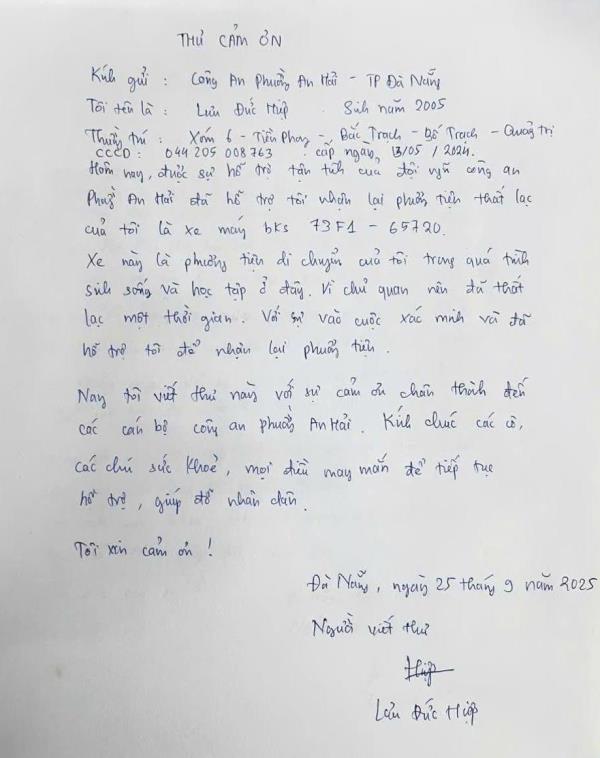 THƯ CẢM ƠN
Kính gửi : Công An Phường An Hải - TP Đà Nẵng
Tôi tên là : Lưu Đức Hiệp . Sinh năm 2005
Thường trú : Xóm 6 - Tiền Phong -, Bắc Trạch - Bố Trạch - Quảng trị
CCCD : 044205008763 : cấp ngày, 13/05/2024.
Hôm nay, được sự hỗ trợ tận tình của đội ngũ công an
Phường An Hải đã hỗ trợ tôi nhận lại phương tiện thất lạc
của tôi là xe máy bks 73F1 - 65720.
Xe này là phương tiện di chuyển của tôi trong quá trình
sinh sống và học tập ở đây. Vì chủ quan nên đã thất
lạc một thời gian. Với sự vào cuộc xác minh và đã
hỗ trợ tôi để nhận lại phương tiện.
Nay tôi viết thư này với sự cảm ơn chân thành đến
các cán bộ công an phường An Hải. Kính chúc các cô,
các chú sức khoẻ, mọi điều may mắn để tiếp tục
hỗ trợ, giúp đỡ nhân dân.
Tôi xin cảm ơn !
Đà Nẵng, ngày 25 tháng 9 năm 2025
Người viết thư
Hiệp
Lưu Đức Hiệp